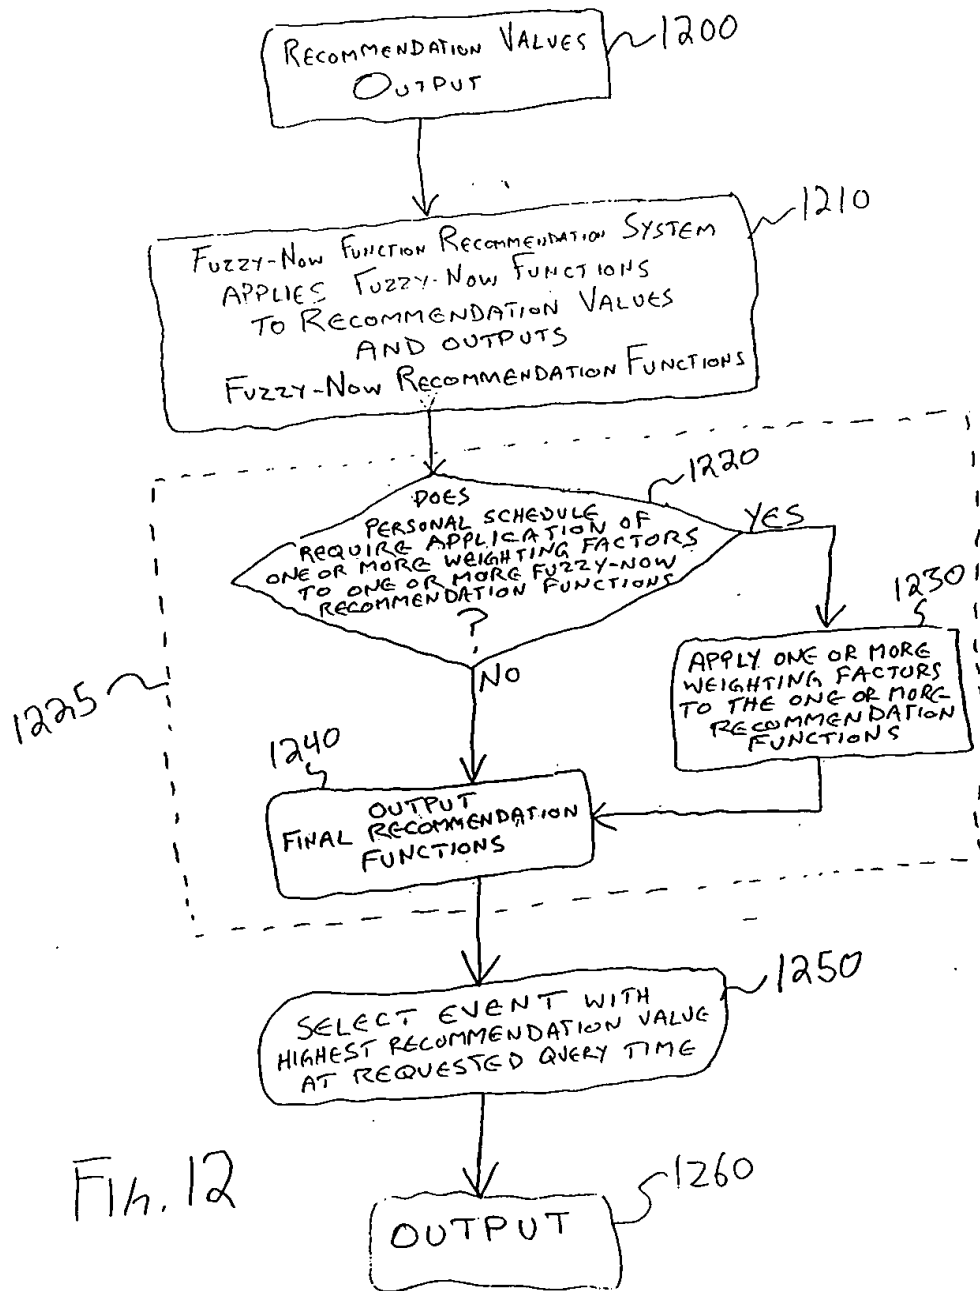 RECOMMENDATION VALUES
OUTPUT
1200
1210
FUZZY-NOW FUNCTION RECOMMENDATION SYSTEM
APPLIES FUZZY-NOW FUNCTIONS
TO RECOMMENDATION VALUES
AND OUTPUTS
FUZZY-NOW RECOMMENDATION FUNCTIONS
1220
DOES
PERSONAL SCHEDULE
REQUIRE APPLICATION OF
ONE OR MORE WEIGHTING FACTORS
TO ONE OR MORE FUZZY-NOW
RECOMMENDATION FUNCTIONS
?
YES
NO
1230
APPLY ONE OR MORE
WEIGHTING FACTORS
TO THE ONE OR MORE
RECOMMENDATION
FUNCTIONS
1225
1240
OUTPUT
FINAL RECOMMENDATION
FUNCTIONS
1250
SELECT EVENT WITH
HIGHEST RECOMMENDATION VALUE
AT REQUESTED QUERY TIME
Fig. 12
1260
OUTPUT